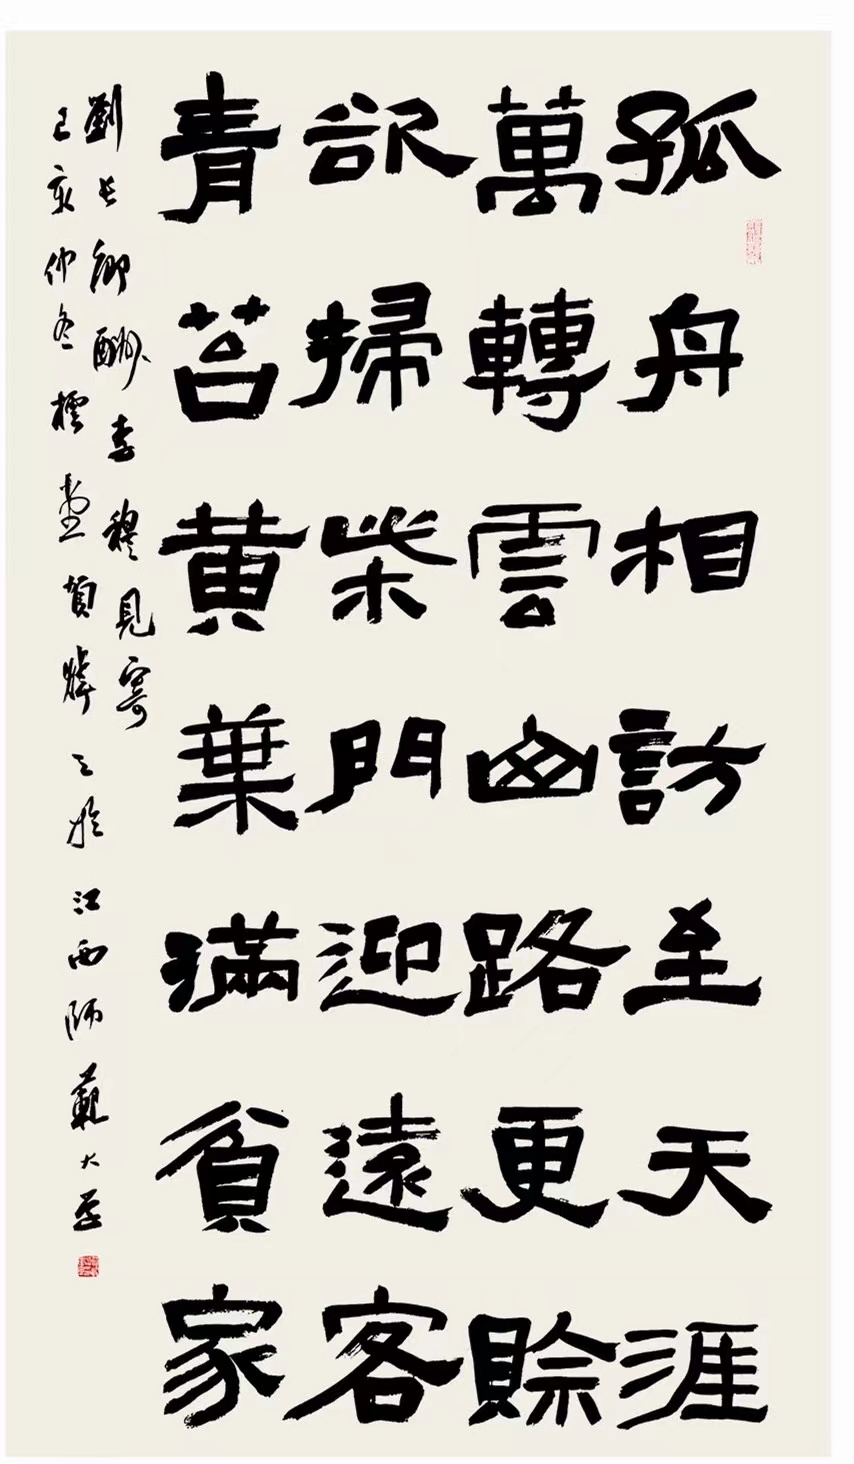 孤舟相訪至天涯
萬轉雲山路更賒
欲掃柴門迎遠客
青苔黃葉滿貧家
劉長卿酬李穆見寄
己亥仲冬堂賀煒之於江西師範大學